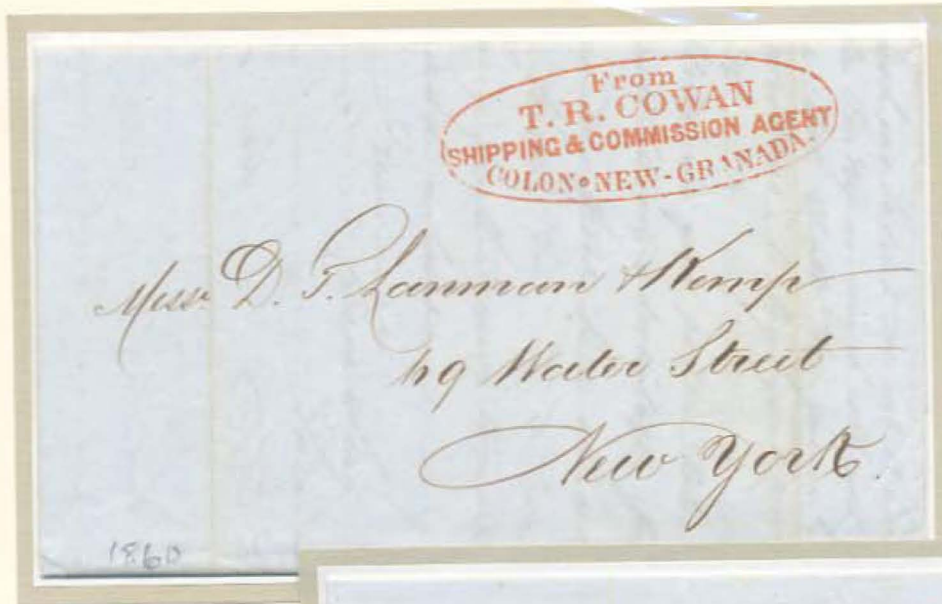 From
T. R. COWAN
SHIPPING & COMMISSION AGENT
COLON • NEW-GRANADA.
Messrs. D. T. Lanman & Kemp
69 Water Street
New York.
1860